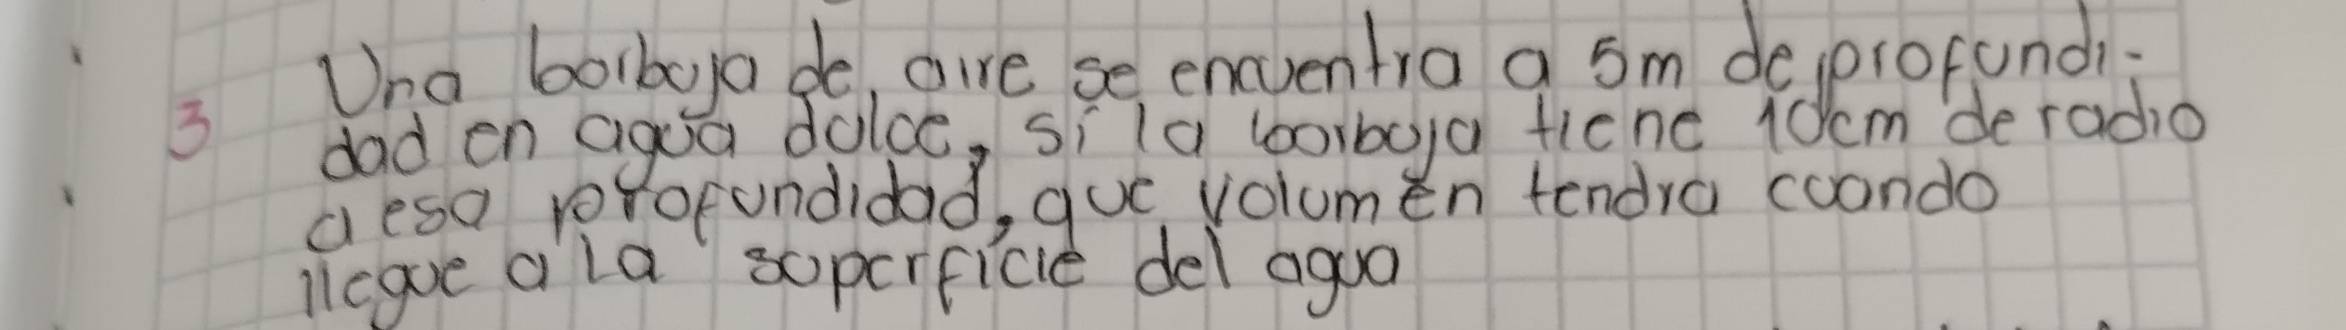 3 Una borboja de aire se encuentra a 5m de profundi-
dad en agua dulce, si la borboja tiene 10cm de radio
a esa profundidad, que volumen tendra cuando
llegue a la superficie del agua